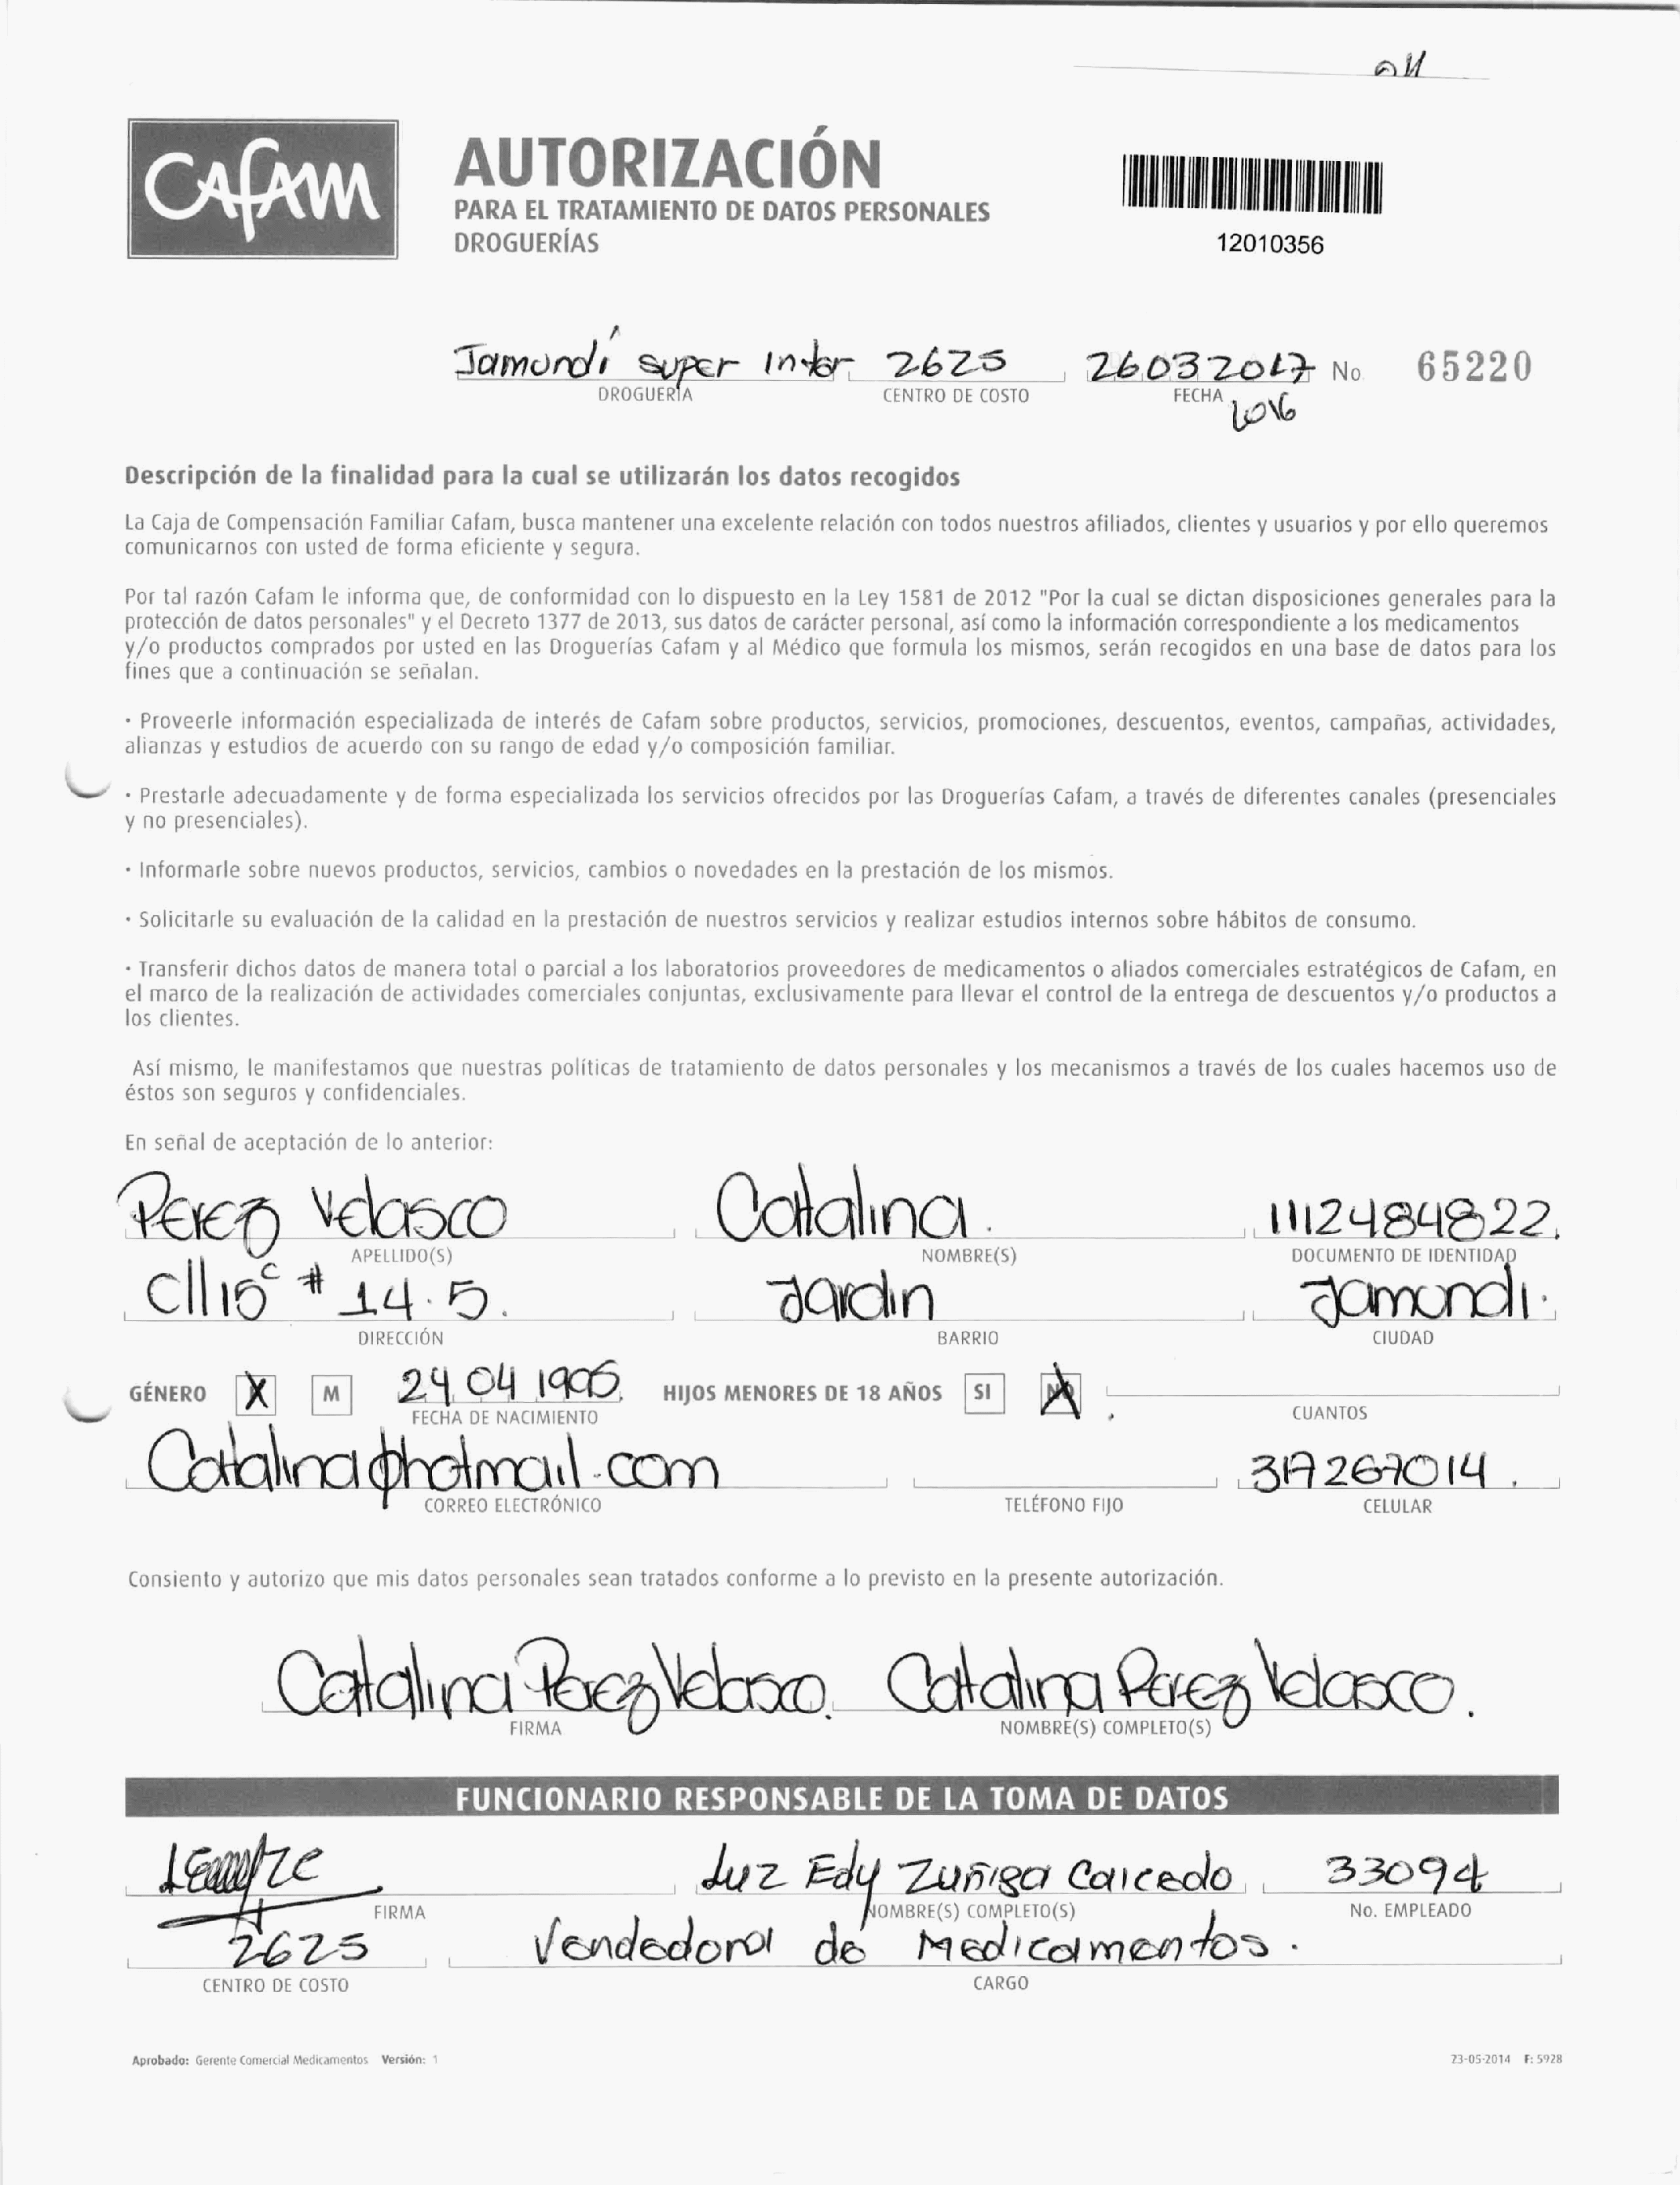 CAFAM
AUTORIZACIÓN
PARA EL TRATAMIENTO DE DATOS PERSONALES
DROGUERÍAS
12010356
Jamundí super Inter 2625 26032017 No. 65220
DROGUERÍA CENTRO DE COSTO FECHA
2016
Descripción de la finalidad para la cual se utilizarán los datos recogidos
La Caja de Compensación Familiar Cafam, busca mantener una excelente relación con todos nuestros afiliados, clientes y usuarios y por ello queremos
comunicarnos con usted de forma eficiente y segura.
Por tal razón Cafam le informa que, de conformidad con lo dispuesto en la Ley 1581 de 2012 "Por la cual se dictan disposiciones generales para la
protección de datos personales" y el Decreto 1377 de 2013, sus datos de carácter personal, así como la información correspondiente a los medicamentos
y/o productos comprados por usted en las Droguerías Cafam y al Médico que formula los mismos, serán recogidos en una base de datos para los
fines que a continuación se señalan.
· Proveerle información especializada de interés de Cafam sobre productos, servicios, promociones, descuentos, eventos, campañas, actividades,
alianzas y estudios de acuerdo con su rango de edad y/o composición familiar.
· Prestarle adecuadamente y de forma especializada los servicios ofrecidos por las Droguerías Cafam, a través de diferentes canales (presenciales
y no presenciales).
· Informarle sobre nuevos productos, servicios, cambios o novedades en la prestación de los mismos.
· Solicitarle su evaluación de la calidad en la prestación de nuestros servicios y realizar estudios internos sobre hábitos de consumo.
· Transferir dichos datos de manera total o parcial a los laboratorios proveedores de medicamentos o aliados comerciales estratégicos de Cafam, en
el marco de la realización de actividades comerciales conjuntas, exclusivamente para llevar el control de la entrega de descuentos y/o productos a
los clientes.
Así mismo, le manifestamos que nuestras políticas de tratamiento de datos personales y los mecanismos a través de los cuales hacemos uso de
éstos son seguros y confidenciales.
En señal de aceptación de lo anterior:
Perez Velasco Catalina. 1112484822.
APELLIDO(S) NOMBRE(S) DOCUMENTO DE IDENTIDAD
Cll 15c # 14.5. Jardin Jamundi.
DIRECCIÓN BARRIO CIUDAD
GÉNERO X M 24 04 HIJOS MENORES DE 18 AÑOS SI NO
FECHA DE NACIMIENTO CUANTOS
Catalina@hotmail.com 317267014.
CORREO ELECTRÓNICO TELÉFONO FIJO CELULAR
Consiento y autorizo que mis datos personales sean tratados conforme a lo previsto en la presente autorización.
Catalina Perez Velasco. Catalina Perez Velasco.
FIRMA NOMBRE(S) COMPLETO(S)
FUNCIONARIO RESPONSABLE DE LA TOMA DE DATOS
Luz Edy Zuñiga Caicedo 33094
FIRMA NOMBRE(S) COMPLETO(S) No. EMPLEADO
2625 Vendedora de Medicamentos.
CENTRO DE COSTO CARGO
Aprobado: Gerente Comercial Medicamentos Versión: 1 23-05-2014 F: 5928